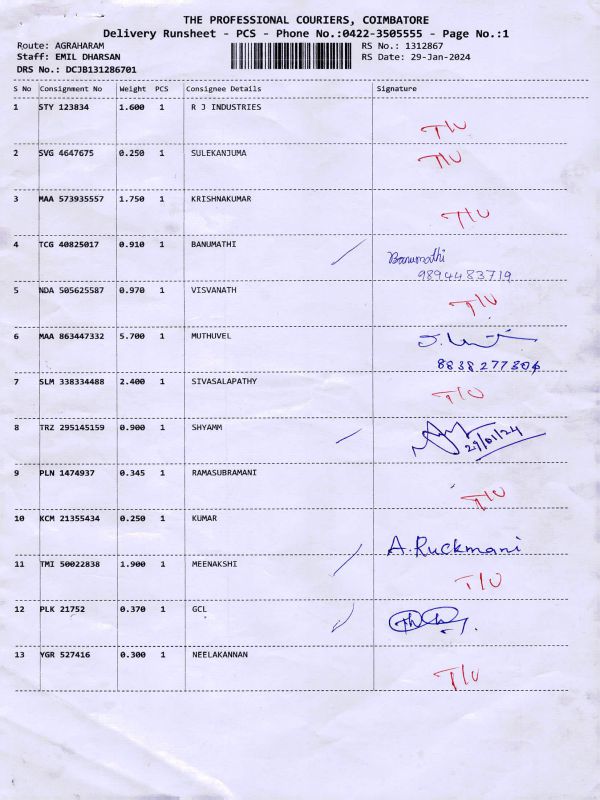 THE PROFESSIONAL COURIERS, COIMBATORE
Delivery Runsheet - PCS - Phone No.:0422-3505555 - Page No.:1
Route: AGRAHARAM RS No.: 1312867
Staff: EMIL DHARSAN RS Date: 29-Jan-2024
DRS No.: DCJB131286701
S No Consignment No Weight PCS Consignee Details Signature
1 STY 123834 1.600 1 R J INDUSTRIES
T/U
2 SVG 4647675 0.250 1 SULEKANJUMA T/U
3 MAA 573935557 1.750 1 KRISHNAKUMAR
T/U
4 TCG 40825017 0.910 1 BANUMATHI Banumathi
9894483719
5 NDA 505625587 0.970 1 VISVANATH
T/U
6 MAA 863447332 5.700 1 MUTHUVEL
8838277304
7 SLM 338334488 2.400 1 SIVASALAPATHY
T/U
8 TRZ 295145159 0.900 1 SHYAMM
29/01/24
9 PLN 1474937 0.345 1 RAMASUBRAMANI
T/U
10 KCM 21355434 0.250 1 KUMAR
A. Ruckmani
11 TMI 50022838 1.900 1 MEENAKSHI
T/U
12 PLK 21752 0.370 1 GCL
13 YGR 527416 0.300 1 NEELAKANNAN
T/U